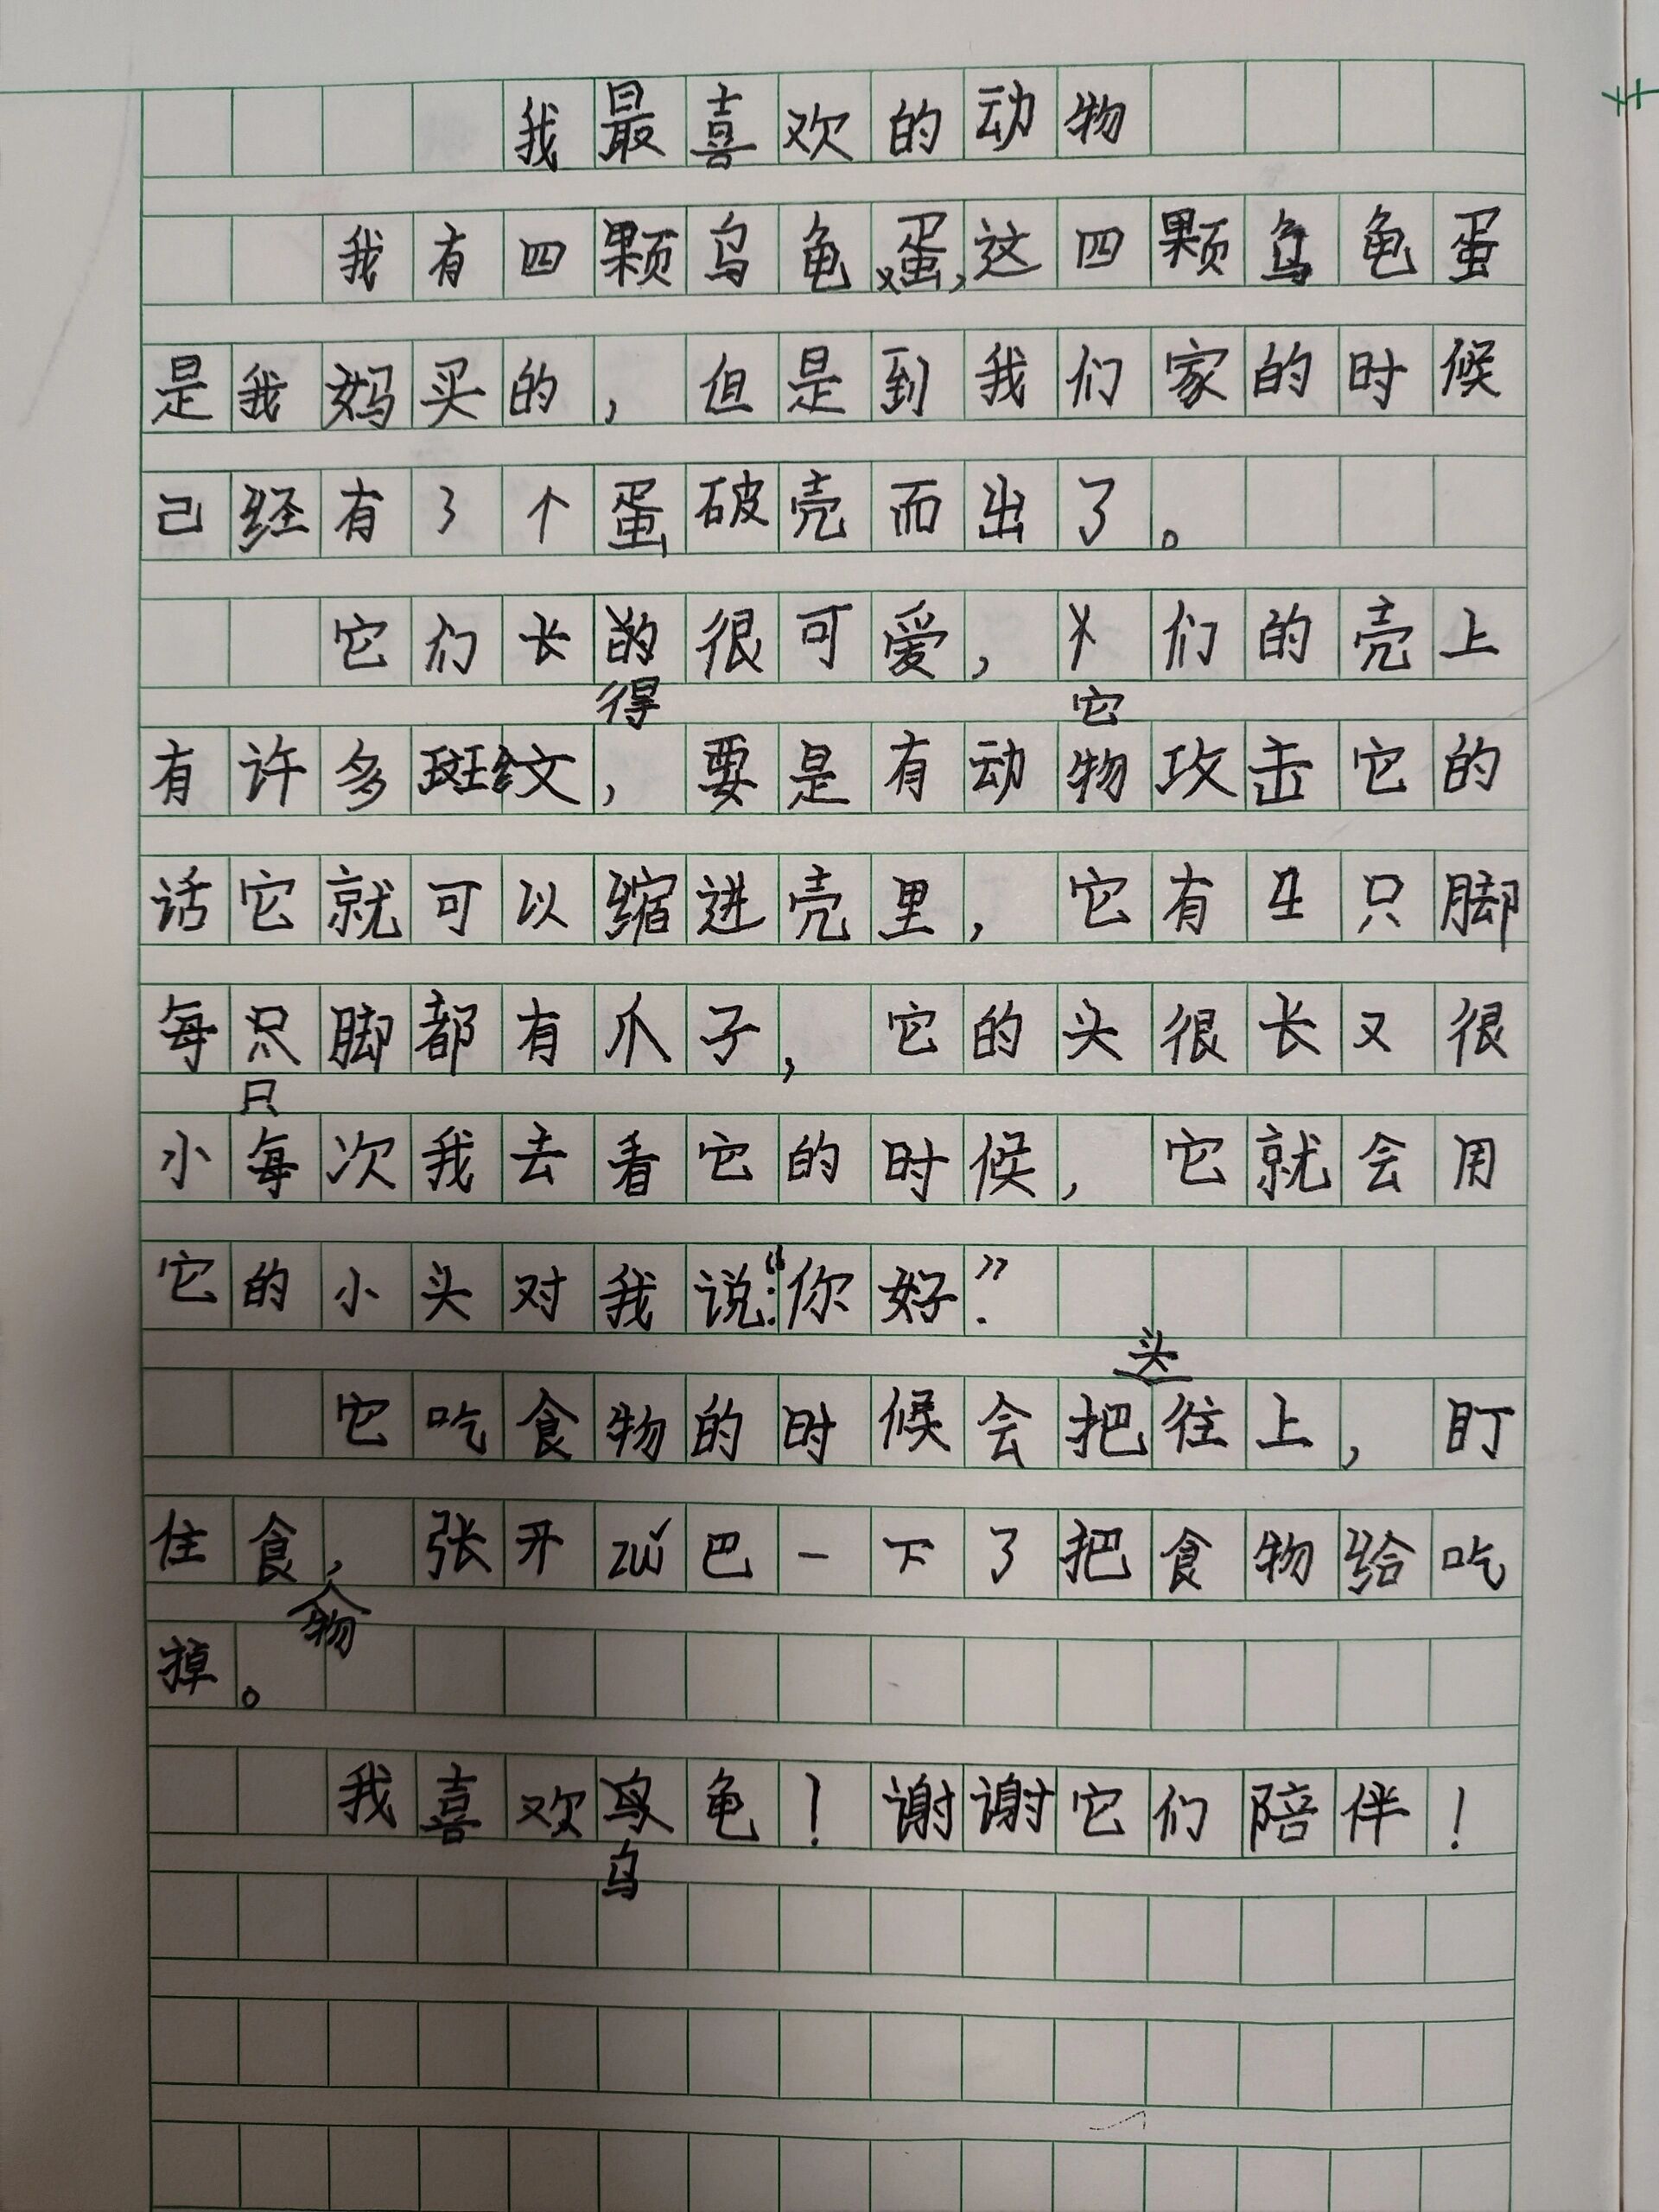 我最喜欢的动物
我有四颗乌龟蛋,这四颗乌龟蛋
是我妈买的，但是到我们家的时候
己经有3个蛋破壳而出了。
它们长得很可爱，它们的壳上
有许多斑纹，要是有动物攻击它的
话它就可以缩进壳里，它有4只脚
每只脚都有爪子，它的头很长又很
小每次我去看它的时候，它就会用
它的小头对我说:“你好”.
它吃食物的时候会把头往上，盯
住食物，张开zuǐ巴一下了把食物给吃
掉。
我喜欢乌龟！谢谢它们陪伴！